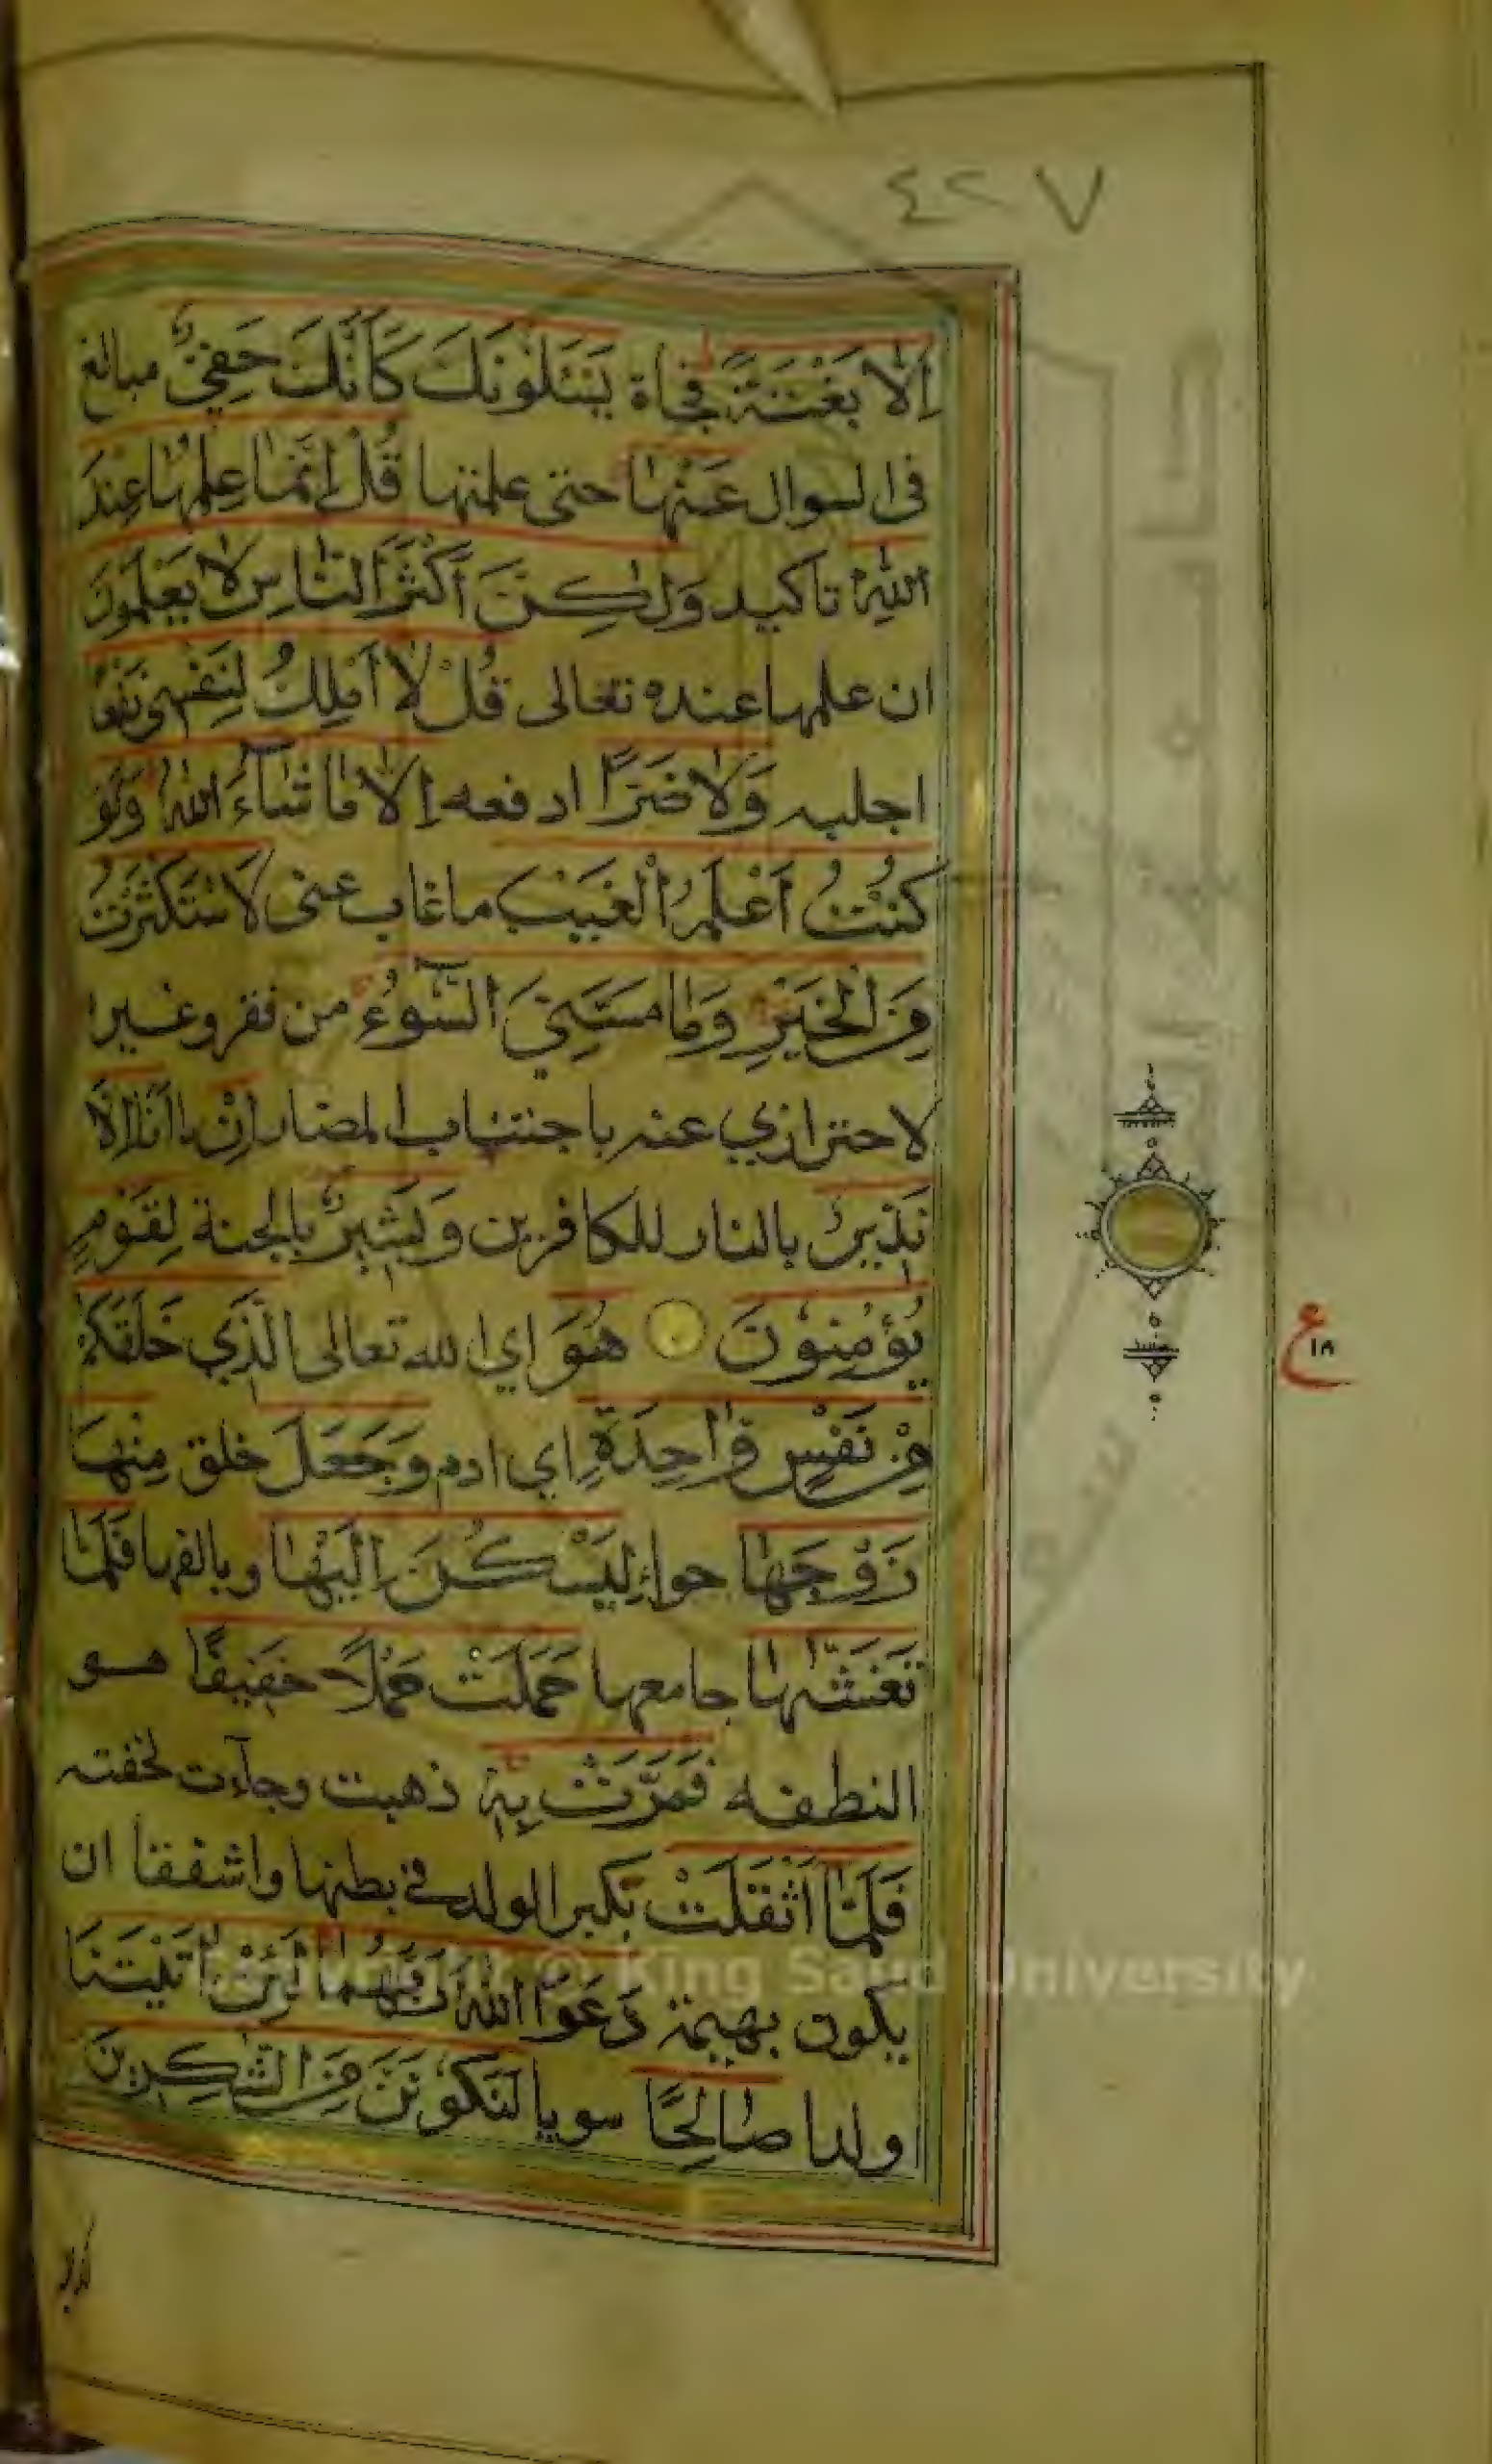 ٤٢٧
اِلَّا بَغْتَةً فجاة يَسْئَلُونَكَ كَأَنَّكَ حَفِيٌّ مبالغ
فى السوال عَنْهَا حتى علمتها قُلْ اِنَّمَا عِلْمُهَا عِنْدَ
اللهِ تاكيد وَلٰكِنَّ أَكْثَرَ النَّاسِ لَا يَعْلَمُونَ
ان علمها عنده تعالى قُلْ لَا اَمْلِكُ لِنَفْسِى نَفْعًا
اجلبه وَلَا ضَرًّا ادفعه اِلَّا مَا شَآءَ اللهُ وَلَوْ
كُنْتُ اَعْلَمُ الْغَيْبَ ماغاب عنى لَاسْتَكْثَرْتُ
مِنَ الْخَيْرِ وَمَا مَسَّنِيَ السُّوءُ من فقر وغيرا
لاحترازي عنه باجتناب المضار اِنْ ما اَنَا اِلَّا
نَذِيرٌ بالنار للكافرين وَبَشِيرٌ بالجنة لِقَوْمٍ
يُؤْمِنُونَ هُوَ اي الله تعالى الَّذِي خَلَقَكُمْ
مِنْ نَفْسٍ وَاحِدَةٍ اي ادم وَجَعَلَ خلق مِنْهَا
زَوْجَهَا حواء لِيَسْكُنَ اِلَيْهَا ويالفها فَلَمَّا
تَغَشّٰهَا جامعها حَمَلَتْ حَمْلًا خَفِيفًا هو
النطفه فَمَرَّتْ بِهٖ ذهبت وجآءت لخفته
فَلَمَّا اَثْقَلَتْ بكبر الولد في بطنها واشفقا ان
يكون بهيمة دَعَوَا اللهَ رَبَّهُمَا لَئِنْ اٰتَيْتَنَا
ولدا صَالِحًا سويا لَنَكُونَنَّ مِنَ الشّٰكِرِينَ
ع
١٨
Copyright © King Saud University